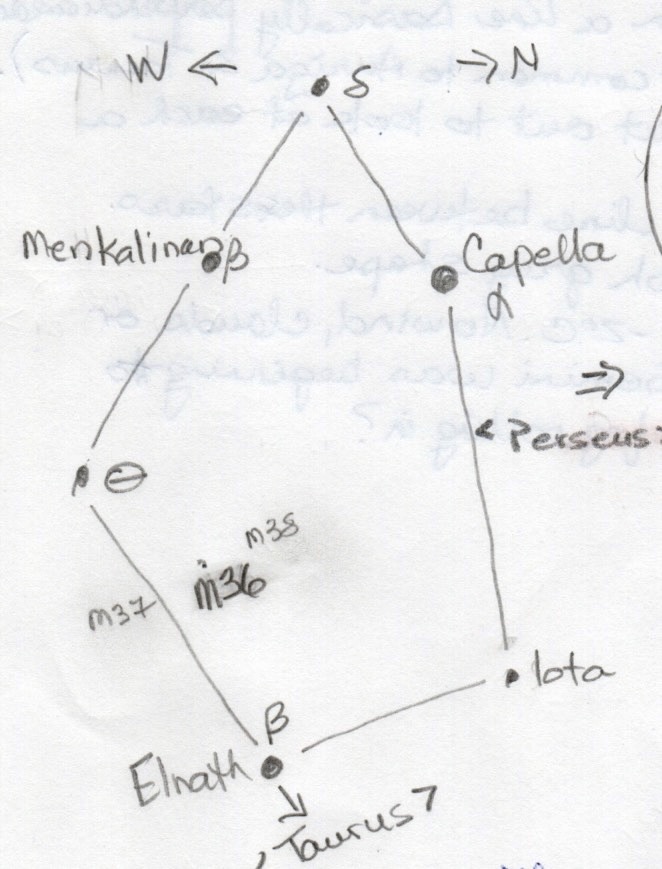 W ← → N
δ
Menkalinan β
Capella
α
⇒
< Perseus?
θ
M38
M36
M37
Iota
β
Elnath
Taurus?